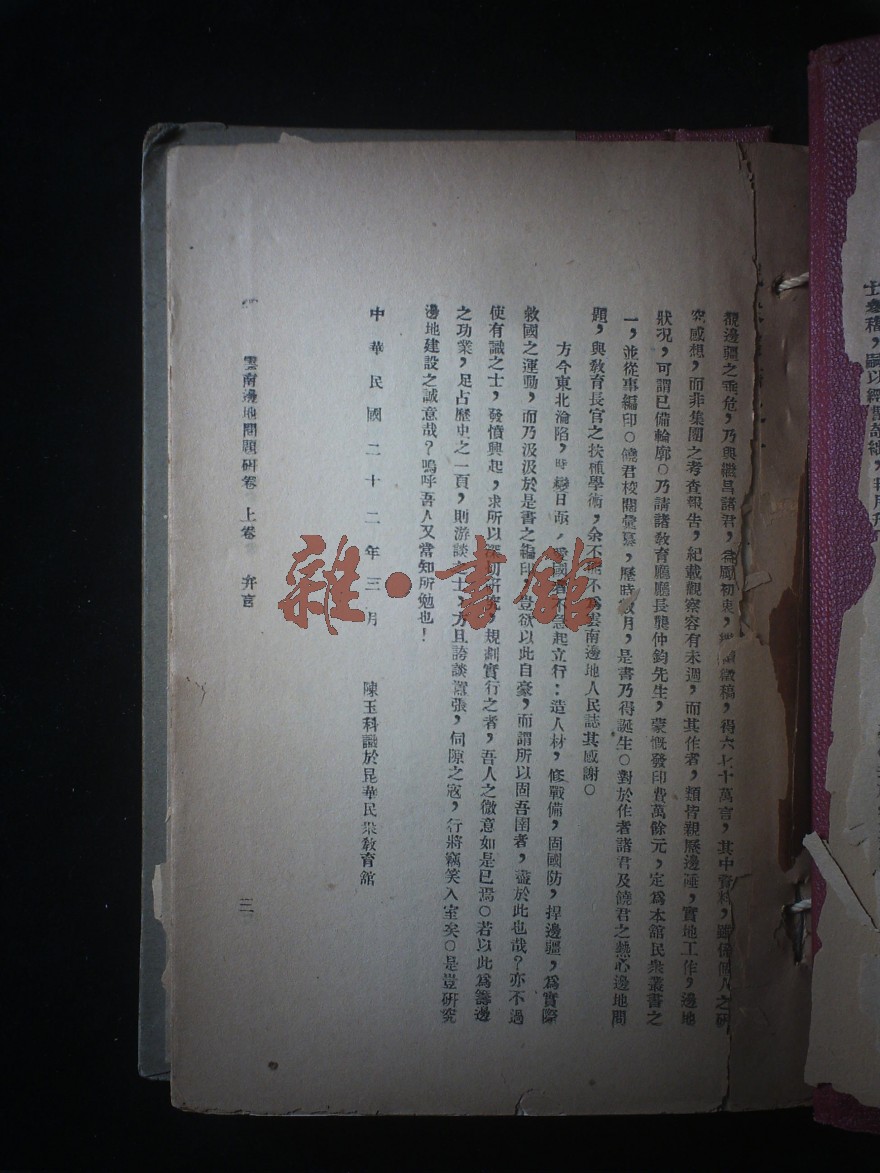 觀邊疆之垂危，乃與繼昌諸君，初衷，徵稿，得六七十萬言，其中資料，雖係個人之研
究感想，而非集團之考查報告，紀載觀察容有未週，而其作者，類皆親歷邊陲，實地工作，邊地
狀況，可謂已備輪廓。乃請諸教育廳廳長龔仲鈞先生，蒙慨發印費萬餘元，定爲本舘民衆叢書之
一，並從事編印。饒君校閱彙纂，歷時數月，是書乃得誕生。對於作者諸君及饒君之熱心邊地問
題，與教育長官之扶植學術，余不能不爲雲南邊地人民誌其感謝。
方今東北淪陷，時變日亟，愛國者不急起立行：造人材，修戰備，固國防，捍邊疆，爲實際
救國之運動，而乃汲汲於是書之編印，豈欲以此自豪，而謂所以固吾圉者，盡於此也哉？亦不過
使有識之士，發憤興起，求所以深切研究，規劃實行之者，吾人之微意如是已焉。若以此爲籌邊
之功業，足占歷史之一頁，則游談之士，方且誇談囂張，伺隙之寇，行將竊笑入室矣。是豈研究
邊地建設之誠意哉？嗚呼吾人又當知所勉也！
中華民國二十二年三月　陳玉科識於昆華民衆敎育舘
雲南邊地問題研　卷上卷　弁言　三
雜·書館